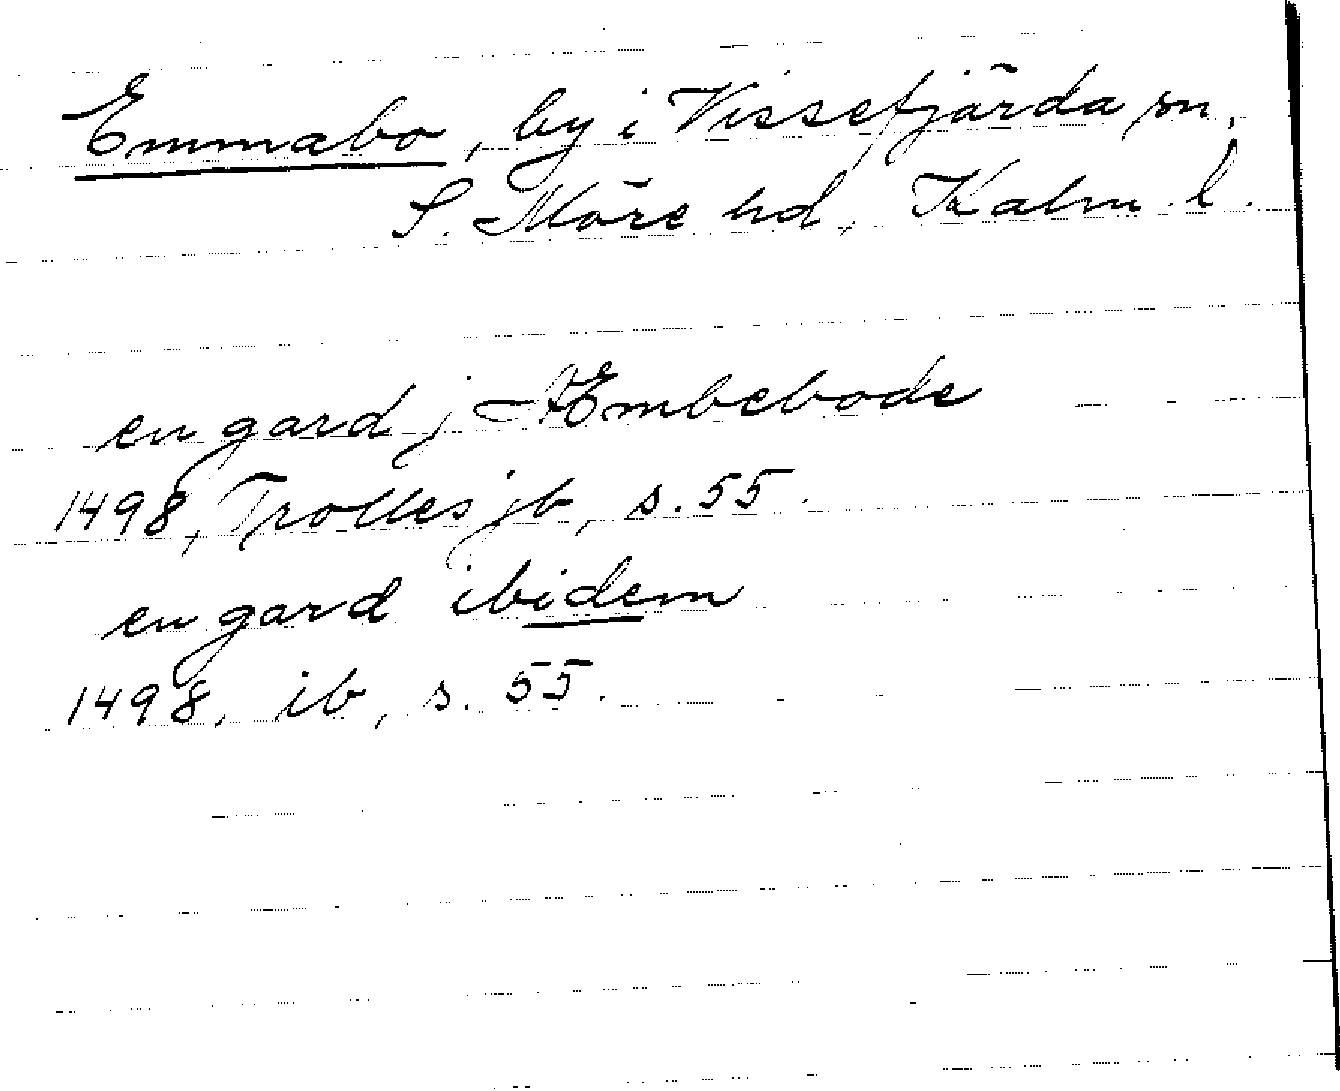 Emmabo, by i Vissefjärda sn,
S. Möre hd, Kalm. l.
en gard j Æmbebode
1498, Trolles jb, s. 55.
en gard ibidem
1498, ib, s. 55.